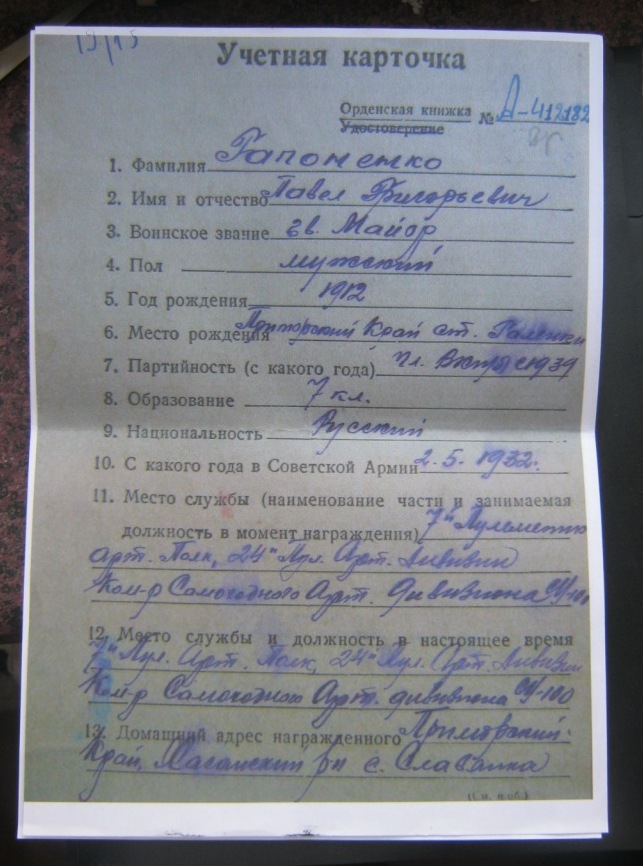 19/15
Учетная карточка
Орденская книжка
Удостоверение № А-412182
1. Фамилия Гапоненко
2. Имя и отчество Павел Григорьевич
3. Воинское звание гв. Майор
4. Пол мужский
5. Год рождения 1912
6. Место рождения Приморский Край ст. Галенки
7. Партийность (с какого года) Чл. ВКП(б) с 1939
8. Образование 7 кл.
9. Национальность Русский
10. С какого года в Советской Армии 2.5.1932.
11. Место службы (наименование части и занимаемая
должность в момент награждения) 7й Пулеметно
арт. Полк, 24й Пул. Арт. Дивизии
Ком-р Самоходного Арт. дивизиона СУ-100
12. Место службы и должность в настоящее время
7й Пул. Арт. Полк, 24й Пул. Арт. Дивизии
Ком-р Самоходного Арт. дивизиона СУ-100
13. Домашний адрес награжденного Приморский
Край, Хасанский р-н с. Славянка
(См. н. об.)